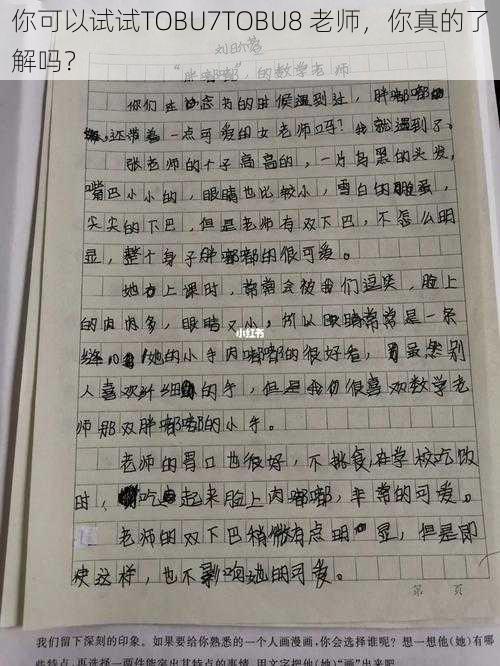 你可以试试TOBU7TOBU8 老师，你真的了
解吗？
"胖嘟嘟"的数学老师
你们在的时候遇到过，胖嘟嘟
还带着一点可爱的女老师吗？我就遇到了。
张老师的个子高高的，一片乌黑的头发，
嘴巴小小的，眼睛也比较小，雪白的脸蛋，
尖尖的下巴，但是老师有双下巴，不怎么明
显，整个身子胖嘟嘟的很可爱。
她上课时，常常会被我们逗笑，脸上
的肉肉多，眼睛又小，所以眼睛常常是一条
缝她的小手肉嘟嘟的很好看，虽然别
人喜欢纤细的手，但是我们很喜欢数学老
师那双胖嘟嘟的小手。
小红书
老师的胃口也很好，不挑食，在学校吃饭
时，吃起来脸上肉嘟嘟，非常的可爱。
老师的双下巴稍微有点明显，但是即
使这样，也不影响她的可爱。
第 页
我们留下深刻的印象。如果要给你熟悉的一个人画漫画，你会选择谁呢？想一想他（她）有哪
些特点，再选择一两件能突出其特点的事情，用文字把他（她）"画"出来吧